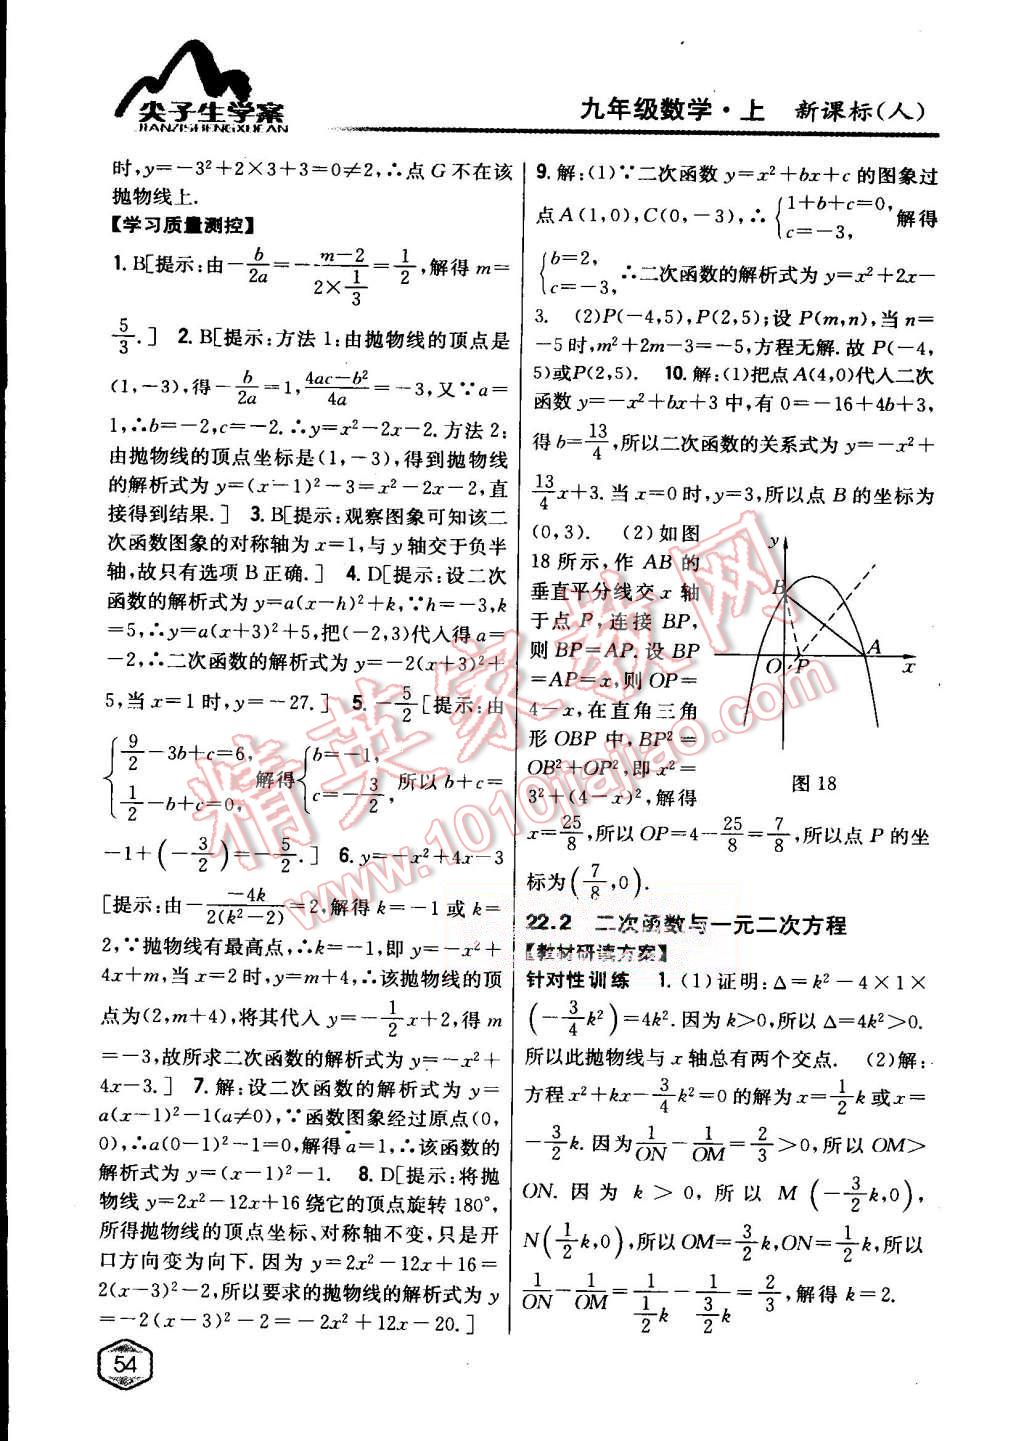 尖子生学案
JIANZISHENGXUEAN
九年级数学·上 新课标(人)
时,y=-3²+2×3+3=0≠2,∴点 G 不在该
抛物线上.
【学习质量测控】
1. B[提示:由-b/2a=-(m-2)/(2×1/3)=1/2,解得 m=
5/3.] 2. B[提示:方法 1:由抛物线的顶点是
(1,-3),得-b/2a=1,(4ac-b²)/4a=-3,又∵a=
1,∴b=-2,c=-2.∴y=x²-2x-2.方法 2:
由抛物线的顶点坐标是(1,-3),得到抛物线
的解析式为 y=(x-1)²-3=x²-2x-2,直
接得到结果.] 3. B[提示:观察图象可知该二
次函数图象的对称轴为 x=1,与 y 轴交于负半
轴,故只有选项 B 正确.] 4. D[提示:设二次
函数的解析式为 y=a(x-h)²+k,∵h=-3,k
=5,∴y=a(x+3)²+5,把(-2,3)代入得 a=
-2,∴二次函数的解析式为 y=-2(x+3)²+
5,当 x=1 时,y=-27.] 5. -5/2[提示:由
{9/2-3b+c=6, 1/2-b+c=0, 解得{b=-1, c=-3/2, 所以 b+c=
-1+(-3/2)=-5/2.] 6. y=-x²+4x-3
[提示:由-(-4k)/(2(k²-2))=2,解得 k=-1 或 k=
2,∵抛物线有最高点,∴k=-1,即 y=-x²+
4x+m,当 x=2 时,y=m+4,∴该抛物线的顶
点为(2,m+4),将其代入 y=-1/2x+2,得 m
=-3,故所求二次函数的解析式为 y=-x²+
4x-3.] 7. 解:设二次函数的解析式为 y=
a(x-1)²-1(a≠0),∵函数图象经过原点(0,
0),∴a(0-1)²-1=0,解得 a=1,∴该函数的
解析式为 y=(x-1)²-1. 8. D[提示:将抛
物线 y=2x²-12x+16 绕它的顶点旋转 180°,
所得抛物线的顶点坐标、对称轴不变,只是开
口方向变为向下.因为 y=2x²-12x+16=
2(x-3)²-2,所以要求的抛物线的解析式为 y
=-2(x-3)²-2=-2x²+12x-20.]
54
9. 解:(1)∵二次函数 y=x²+bx+c 的图象过
点 A(1,0),C(0,-3),∴{1+b+c=0, c=-3, 解得
{b=2, c=-3, ∴二次函数的解析式为 y=x²+2x-
3. (2)P(-4,5),P(2,5);设 P(m,n),当 n=
-5 时,m²+2m-3=-5,方程无解.故 P(-4,
5)或P(2,5). 10. 解:(1)把点A(4,0)代入二次
函数 y=-x²+bx+3 中,有 0=-16+4b+3,
得 b=13/4,所以二次函数的关系式为 y=-x²+
13/4x+3.当 x=0 时,y=3,所以点 B 的坐标为
(0,3). (2)如图
18 所示,作 AB 的
垂直平分线交 x 轴
于点 P,连接 BP,
则 BP=AP.设 BP
=AP=x,则 OP=
4-x,在直角三角
形 OBP 中,BP²=
OB²+OP²,即 x²=
3²+(4-x)²,解得
y
B
O P A x
图 18
x=25/8,所以 OP=4-25/8=7/8,所以点 P 的坐
标为(7/8,0).
22.2 二次函数与一元二次方程
【教材研读方案】
针对性训练 1. (1)证明:Δ=k²-4×1×
(-3/4k²)=4k².因为 k>0,所以 Δ=4k²>0.
所以此抛物线与 x 轴总有两个交点. (2)解:
方程 x²+kx-3/4k²=0 的解为 x=1/2k 或 x=
-3/2k.因为1/ON-1/OM=2/3>0,所以 OM>
ON.因为 k>0,所以 M(-3/2k,0),
N(1/2k,0),所以 OM=3/2k,ON=1/2k,所以
1/ON-1/OM=1/(1/2k)-1/(3/2k)=2/3,解得 k=2.
精英家教网
www.1010jiajiao.com